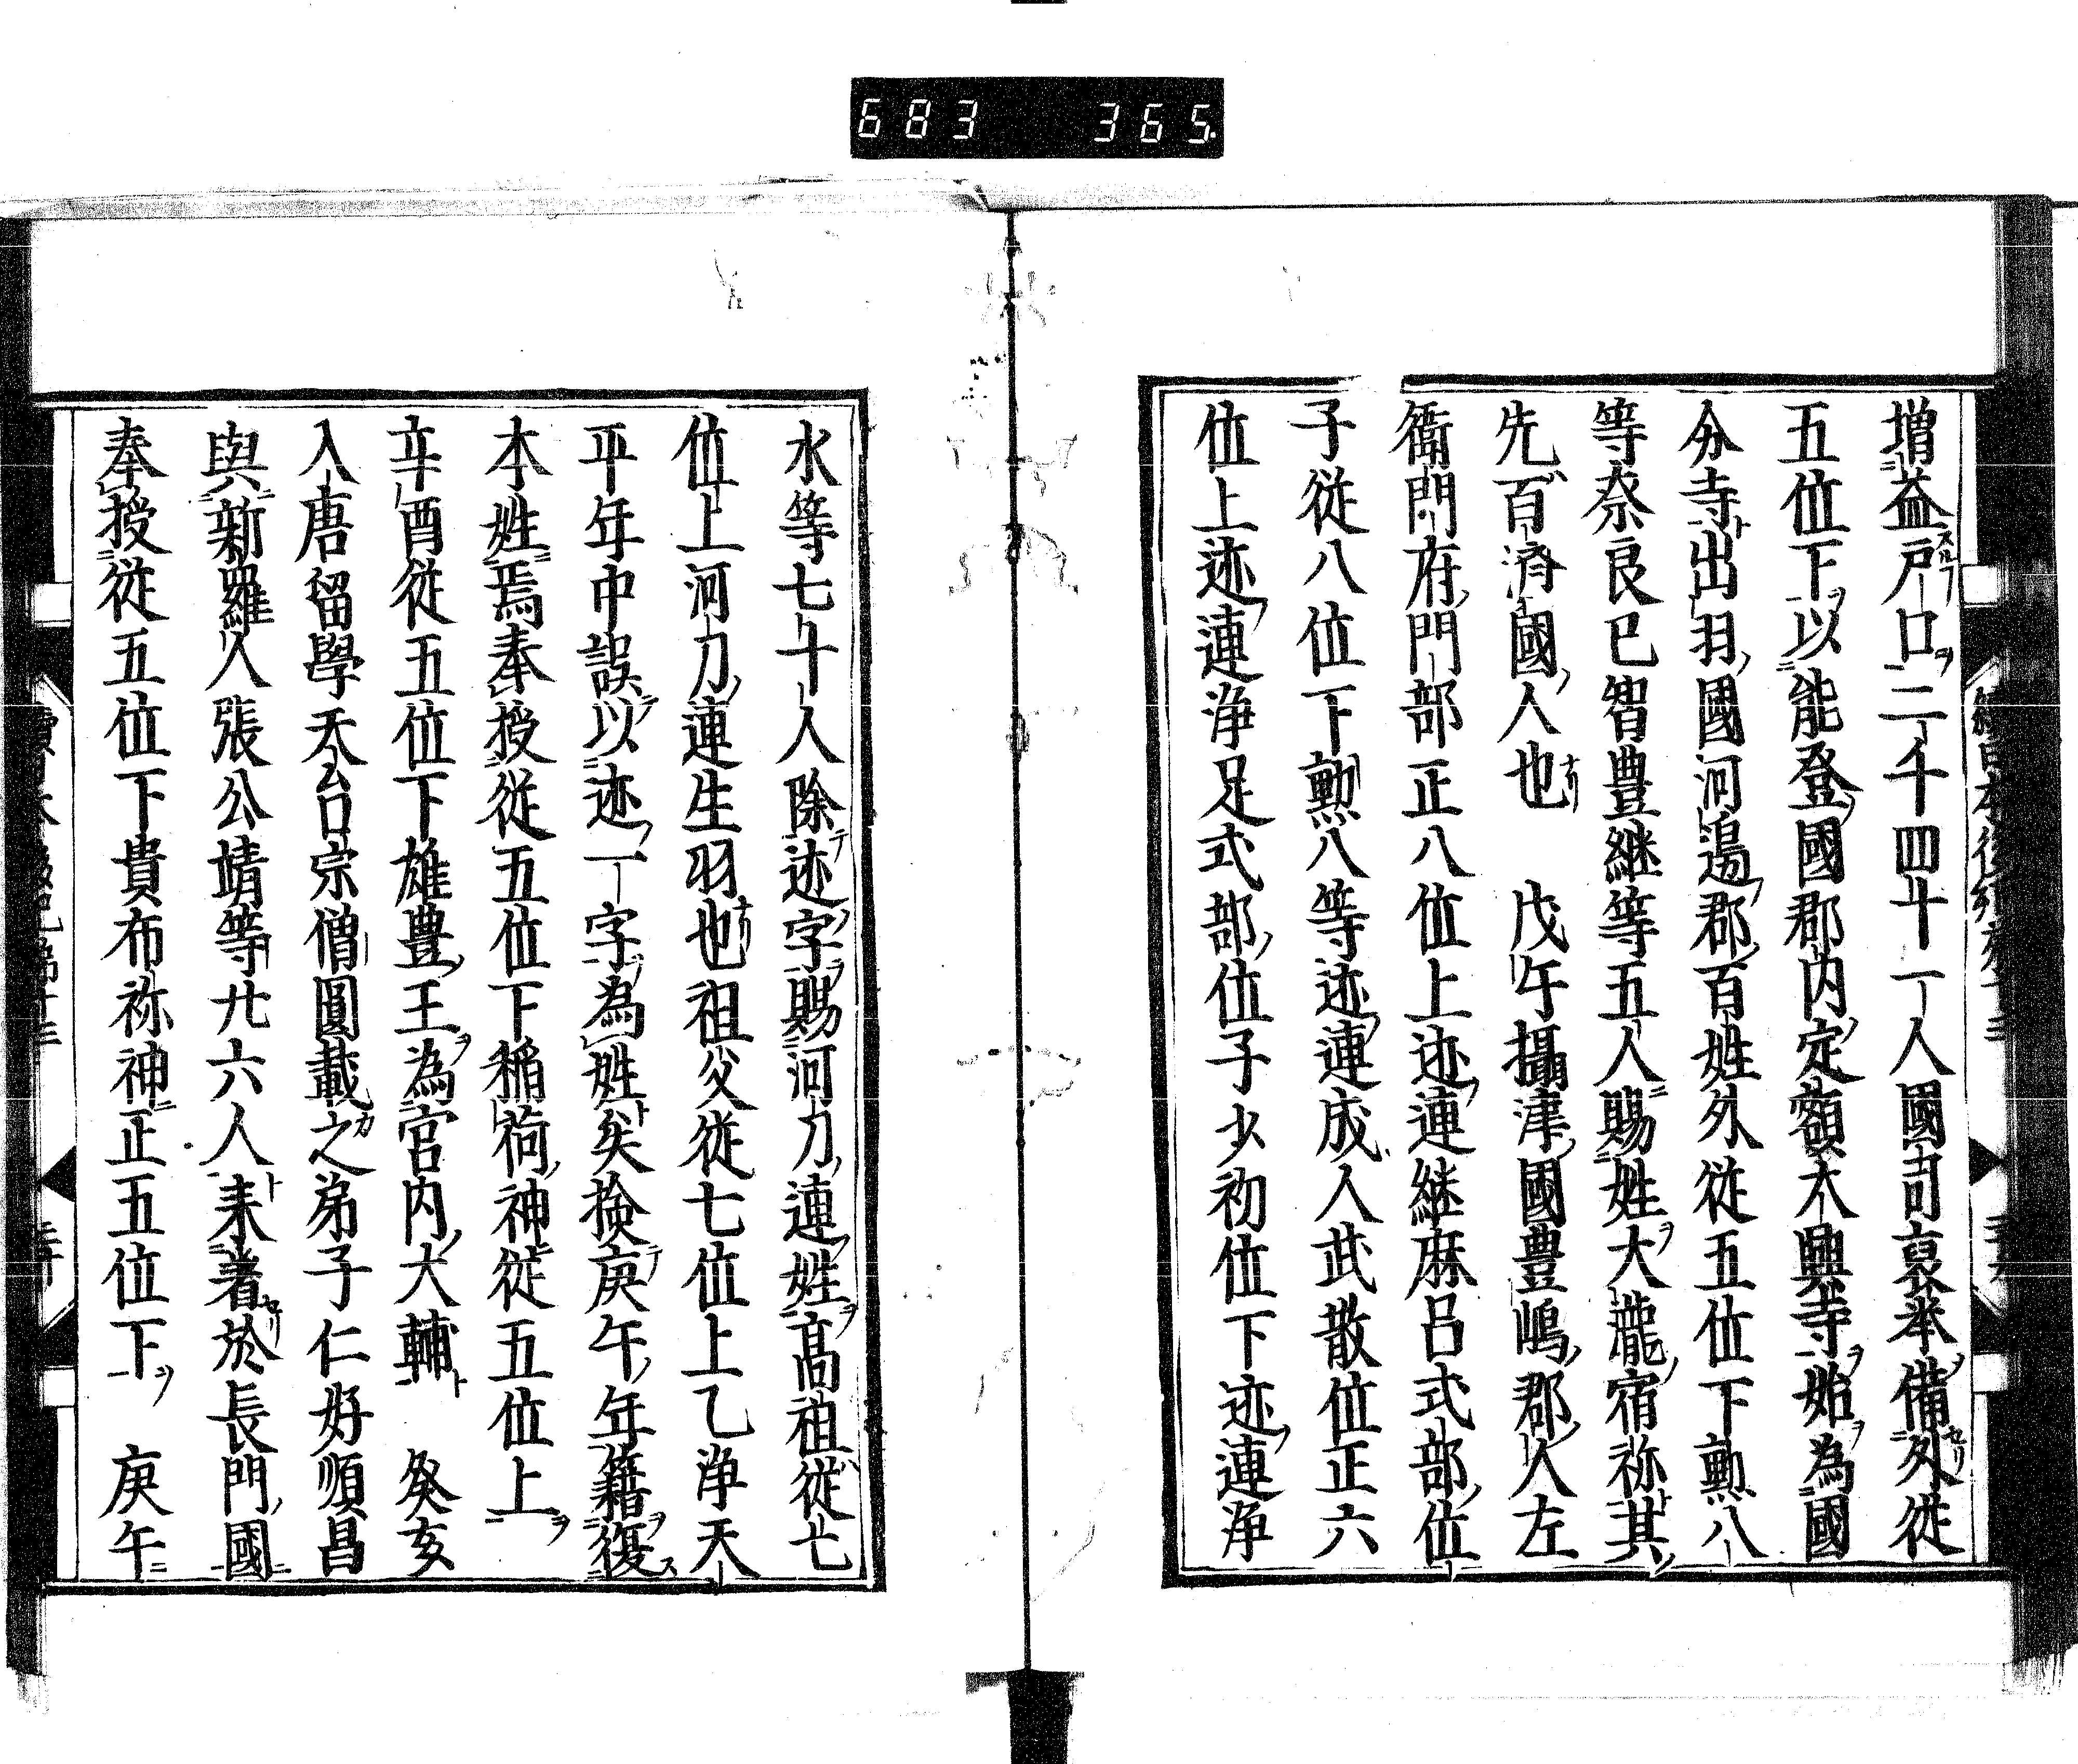 683 365
増益戸口二千四十一人國司裒举備外従
五位下以能登國郡内定額大興寺始為國
分寺出羽國河邉郡百姓外従五位下勲八
等奈良已智豊継等五人賜姓大瀧宿祢其
先百済國人也 戊午攝津國豊嶋郡人左
衛門府門部正八位上迹連継麻呂式部位
子従八位下勲八等迹連成人武散位正六
位上迹連浄足式部位子少初位下迹連浄
水等七十人除迹字賜河刀連姓髙祖従七
位上河刀連生羽也祖父従七位上乙浄天
平年中誤以迹一字為姓矣撿庚午年籍復
本姓焉奉授従五位下稲荷神従五位上
辛酉従五位下雄豊王為宮内大輔 癸亥
入唐留學天台宗僧圓載之弟子仁好順昌
與新羅人張公靖等廿六人来著於長門國
奉授従五位下貴布祢神正五位下 庚午